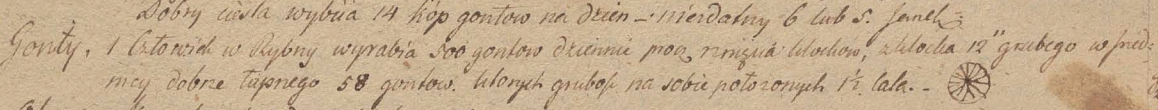 Dobry cieśla wybiia 14 kop gontow na dzień – nierdatny 6 lub 5.
Gonty. 1 Człowiek w Rybny wyrabia 500 gontow dziennie procz rznięcia klockow, z klocka 12" grubego w sred=
nicy dobrze łupnego 58 gontow. ktorych grubość na sobie położonych 1½ cala. –